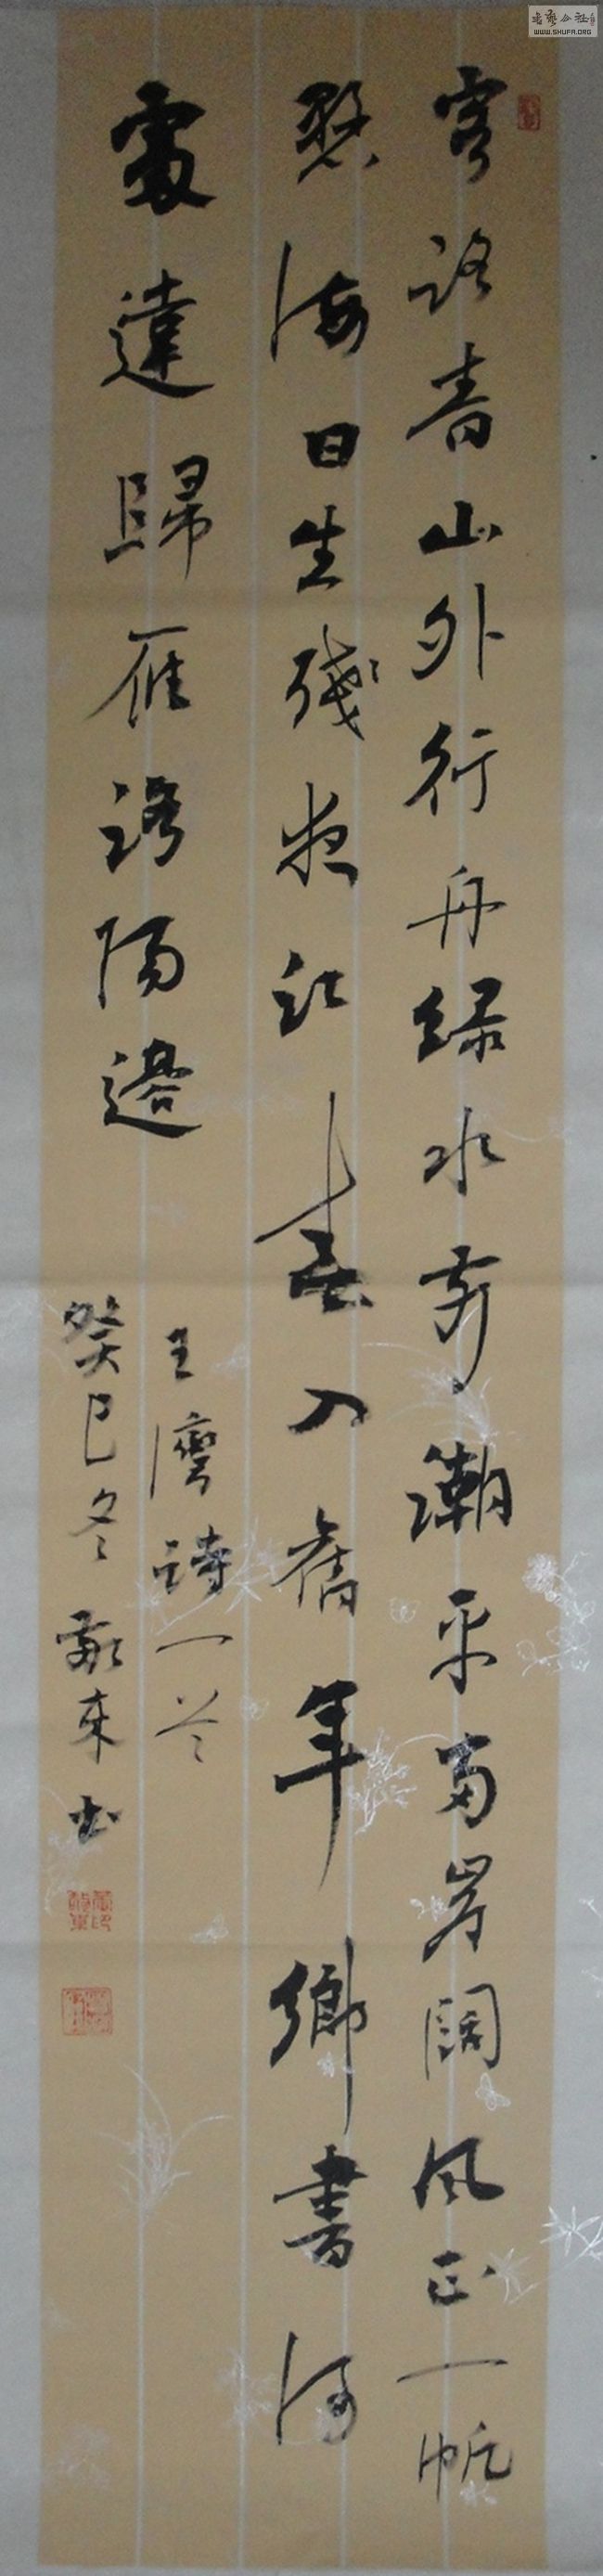 客路青山外行舟绿水前潮平两岸阔风正一帆
悬海日生残夜江春入舊年鄉書何
處達歸雁洛陽邊
王灣詩一首
癸巳冬
书艺公社
WWW.SHUFA.ORG